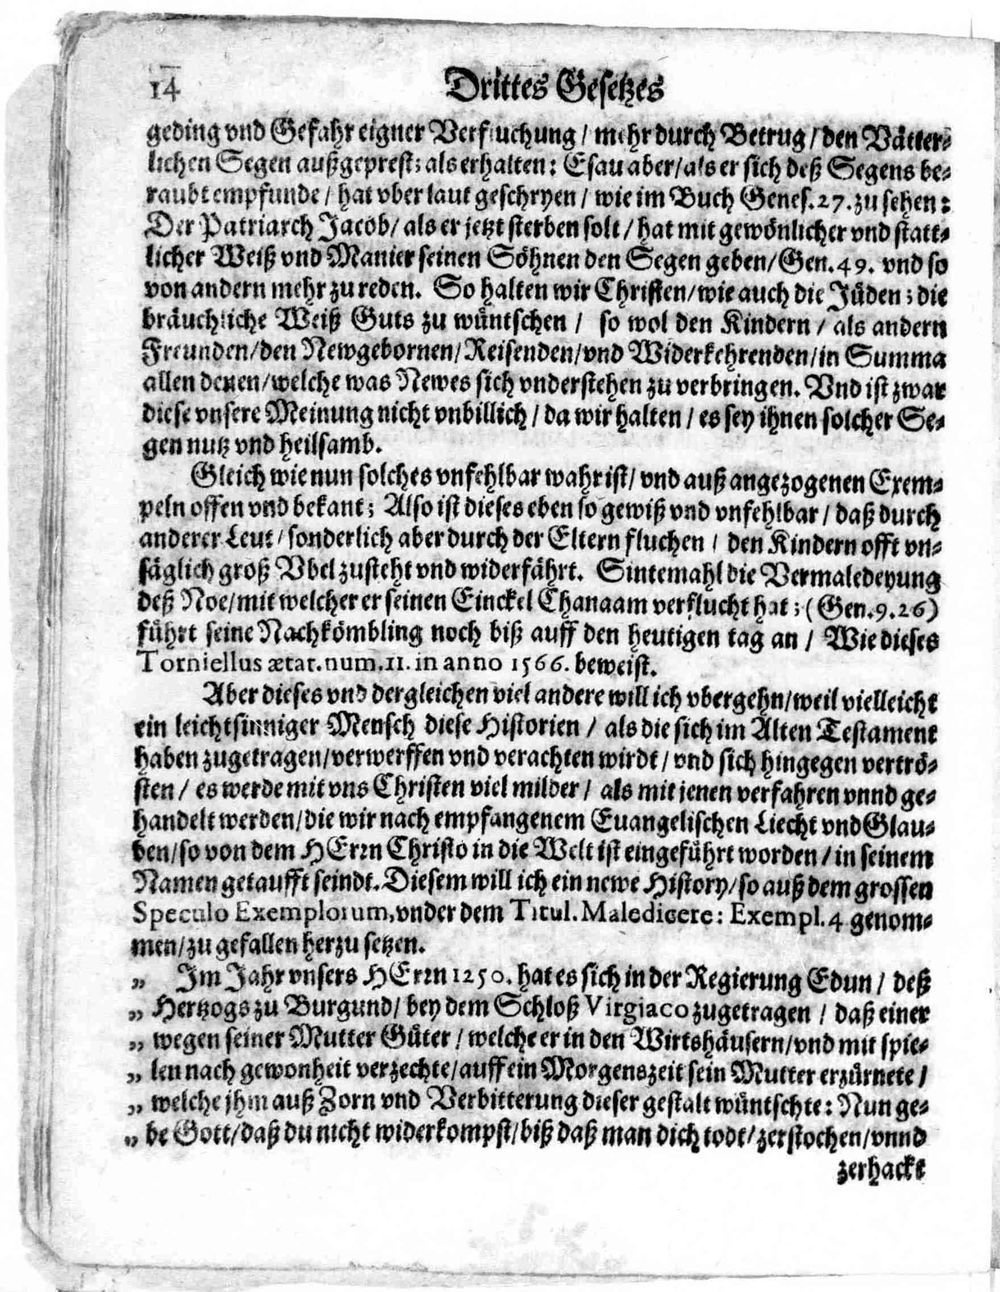 14 Drittes Gesetzes
geding vnd Gefahr eigner Verfluchung / mehr durch Betrug / den Vätter-
lichen Segen außgeprest; als erhalten: Esau aber / als er sich deß Segens be-
raubt empfunde / hat vberlaut geschryen / wie im Buch Genes. 27. zu sehen:
Der Patriarch Jacob / als er jetzt sterben solt / hat mit gewönlicher vnd statt-
licher Weiß vnd Manier seinen Söhnen den Segen geben / Gen. 49. vnd so
von andern mehr zu reden. So halten wir Christen / wie auch die Jüden; die
bräuchliche Weiß Guts zu wüntschen / so wol den Kindern / als andern
Freunden / den Newgebornen / Reisenden / vnd Widerkehrenden / in Summa
allen denen / welche was Newes sich vnderstehen zu verbringen. Vnd ist zwar
diese vnsere Meinung nicht vnbillich / da wir halten / es sey ihnen solcher Se-
gen nutz vnd heilsamb.
Gleich wie nun solches vnfehlbar wahr ist / vnd auß angezogenen Exem-
peln offen vnd bekant; Also ist dieses eben so gewiß vnd vnfehlbar / daß durch
anderer Leut / sonderlich aber durch der Eltern fluchen / den Kindern offt vn-
säglich groß Vbel zusteht vnd widerfährt. Sintemahl die Vermaledeyung
deß Noe / mit welcher er seinen Einckel Chanaam verflucht hat; (Gen. 9. 26)
führt seine Nachkömbling noch biß auff den heutigen tag an / Wie dieses
Torniellus ætat. num. 11. in anno 1566. beweist.
Aber dieses vnd dergleichen viel andere will ich vbergehn / weil vielleicht
ein leichtsinniger Mensch diese Historien / als die sich im Alten Testament
haben zugetragen / verwerffen vnd verachten wirdt / vnd sich hingegen vertrö-
sten / es werde mit vns Christen viel milder / als mit jenen verfahren vnnd ge-
handelt werden / die wir nach empfangenem Euangelischen Liecht vnd Glau-
ben / so von dem HErrn Christo in die Welt ist eingeführt worden / in seinem
Namen getaufft seindt. Diesem will ich ein newe History / so auß dem grossen
Speculo Exemplorum, vnder dem Titul. Maledicere: Exempl. 4 genom-
men / zu gefallen herzu setzen.
„ Im Jahr vnsers HErrn 1250. hat es sich in der Regierung Edun / deß
„ Hertzogs zu Burgund / bey dem Schloß Virgiaco zugetragen / daß einer
„ wegen seiner Mutter Güter / welche er in den Wirtshäusern / vnd mit spie-
„ len nach gewonheit verzechte / auff ein Morgenszeit sein Mutter erzürnete /
„ welche jhm auß Zorn vnd Verbitterung dieser gestalt wüntschte: Nun ge-
„ be Gott / daß du nicht widerkompst / biß daß man dich todt / zerstochen / vnnd
zerhackt